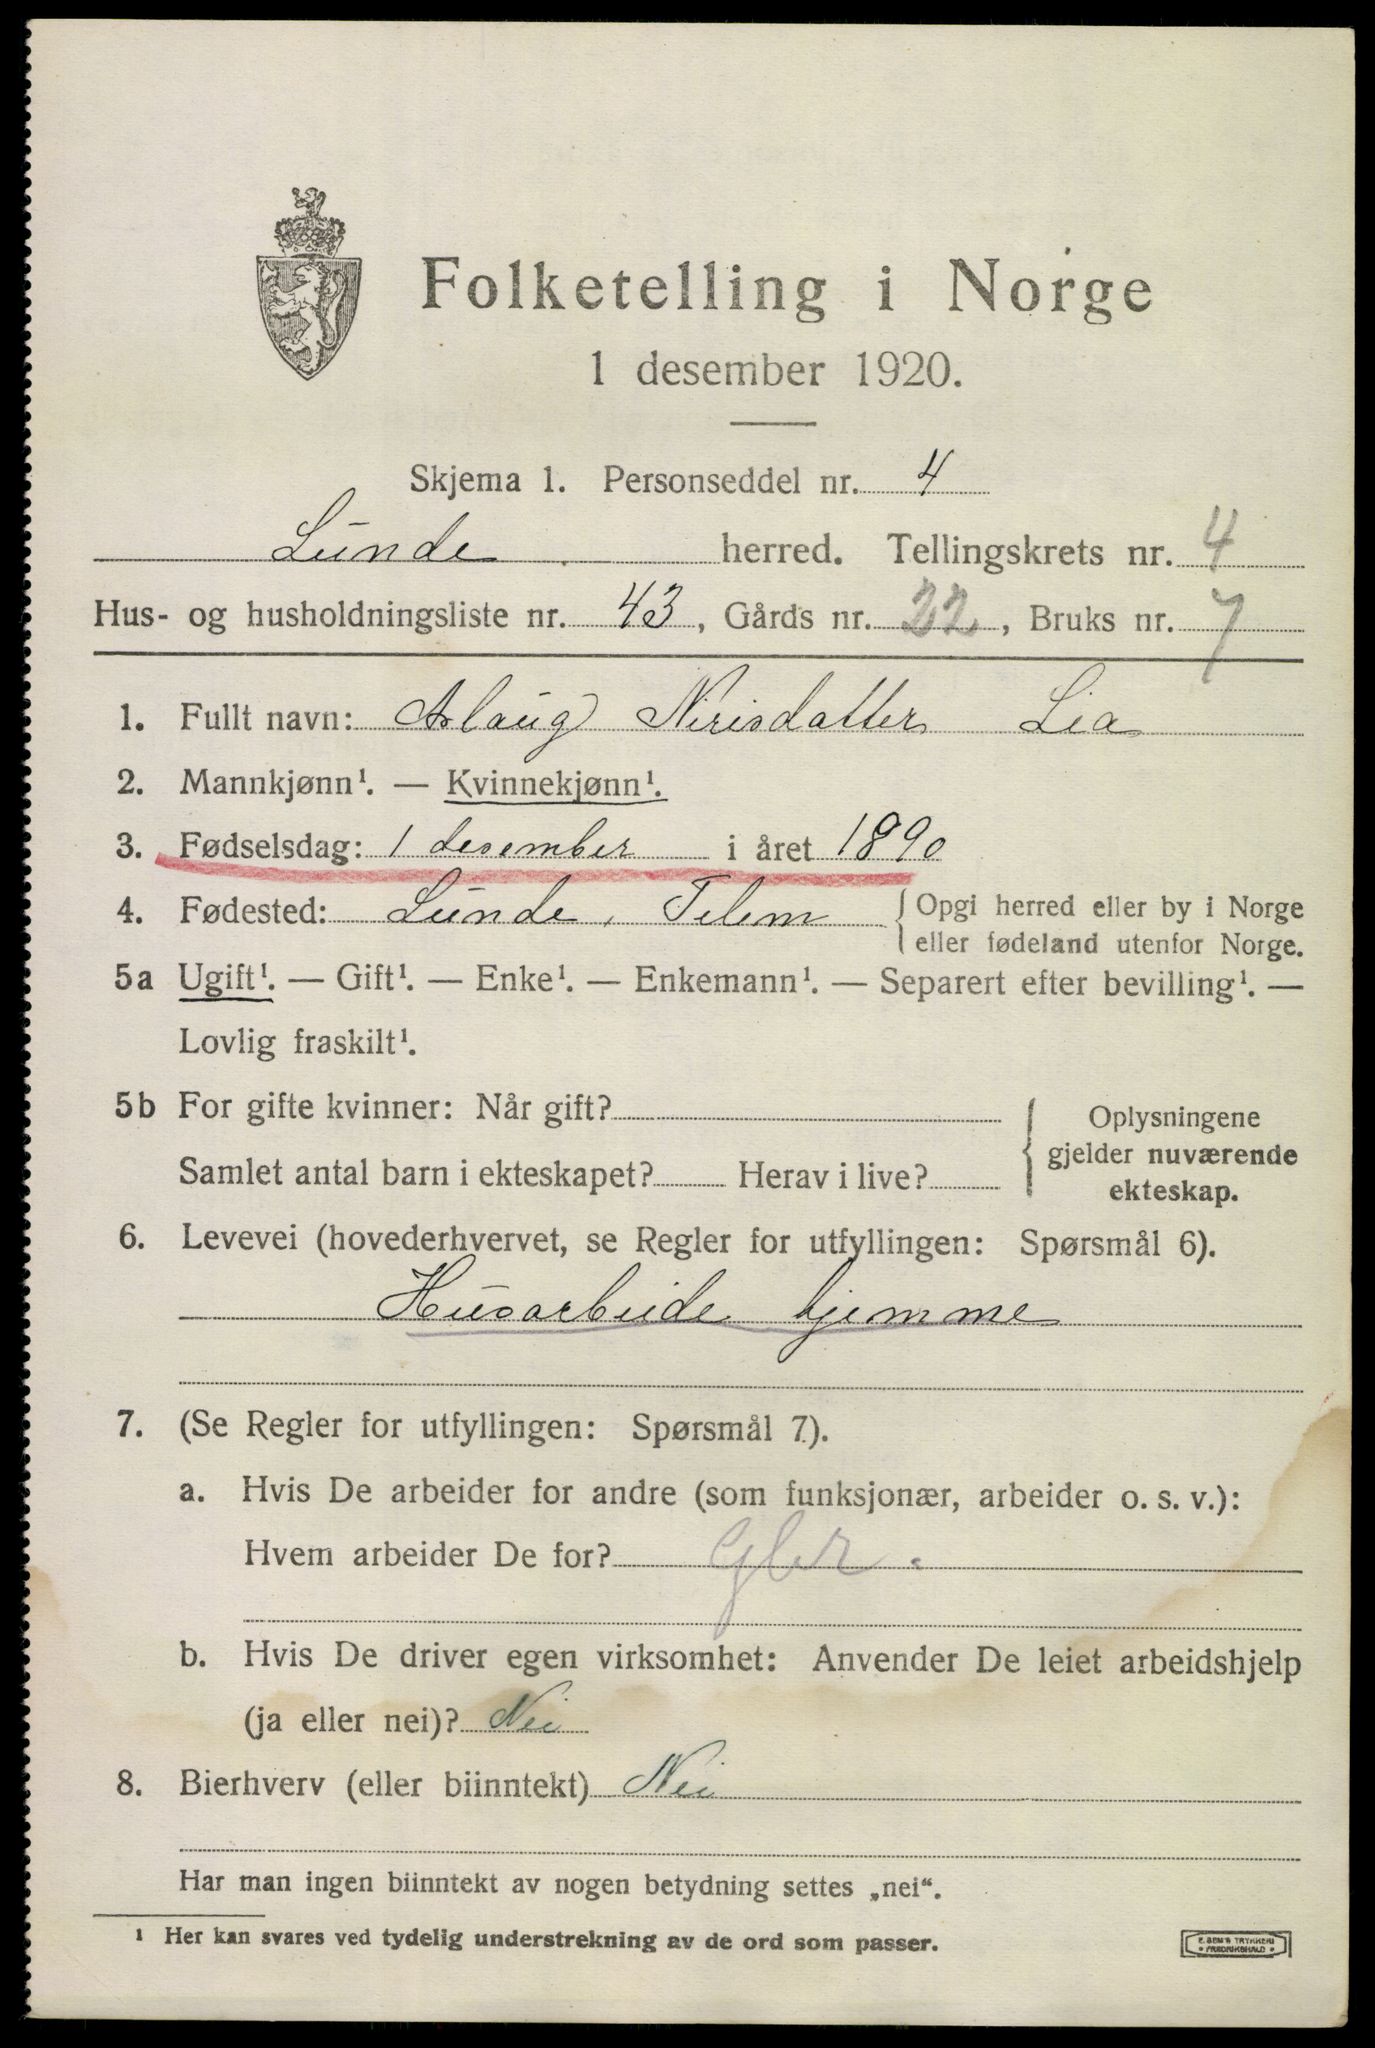 Folketelling i Norge
1 desember 1920.
Skjema 1. Personseddel nr. 4
Lunde herred. Tellingskrets nr. 4
Hus- og husholdningsliste nr. 43, Gårds nr. 22, Bruks nr. 7
1. Fullt navn: Aslaug Nirisdatter Lia
2. Mannkjønn¹. — Kvinnekjønn¹.
3. Fødselsdag: 1 desember i året 1890
4. Fødested: Lunde, Telem { Opgi herred eller by i Norge
eller fødeland utenfor Norge.
5a Ugift¹. — Gift¹. — Enke¹. — Enkemann¹. — Separert efter bevilling¹. —
Lovlig fraskilt¹.
5b For gifte kvinner: Når gift? { Oplysningene
gjelder nuværende
Samlet antal barn i ekteskapet? Herav i live? ekteskap.
6. Levevei (hovederhvervet, se Regler for utfyllingen: Spørsmål 6).
Husarbeide hjemme
7. (Se Regler for utfyllingen: Spørsmål 7).
a. Hvis De arbeider for andre (som funksjonær, arbeider o. s. v.):
Hvem arbeider De for?
b. Hvis De driver egen virksomhet: Anvender De leiet arbeidshjelp
(ja eller nei)? Nei
8. Bierhverv (eller biinntekt) Nei
Har man ingen biinntekt av nogen betydning settes „nei“.
¹ Her kan svares ved tydelig understrekning av de ord som passer.
E. SEM'S TRYKKERI
FREDRIKSHALD